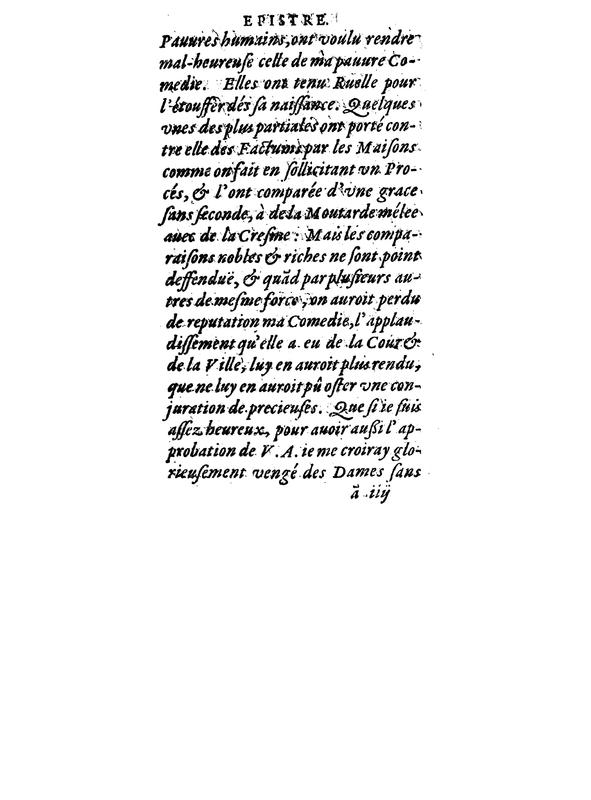 EPISTRE.
Pauures humains, ont voulu rendre
mal-heureuſe celle de ma pauure Co-
medie. Elles ont tenu Ruelle pour
l'étouffer dés ſa naiſſance. Quelques
vnes des plus partiales ont porté con-
tre elle des Factums par les Maiſons
comme on fait en ſollicitant vn Pro-
cés, & l'ont comparée d'vne grace
ſans ſeconde, à de la Moutarde mélée
auec de la Creſme: Mais les compa-
raiſons nobles & riches ne ſont point
deffenduë, & quãd par pluſieurs au-
tres de meſme force, on auroit perdu
de reputation ma Comedie, l'applau-
diſſement qu'elle a eu de la Cour &
de la Ville, luy en auroit plus rendu,
que ne luy en auroit pû oſter vne con-
juration de precieuſes. Que ſi ie ſuis
aſſez heureux, pour auoir auſſi l'ap-
probation de V. A. ie me croiray glo-
rieuſement vengé des Dames ſans
ã iiij